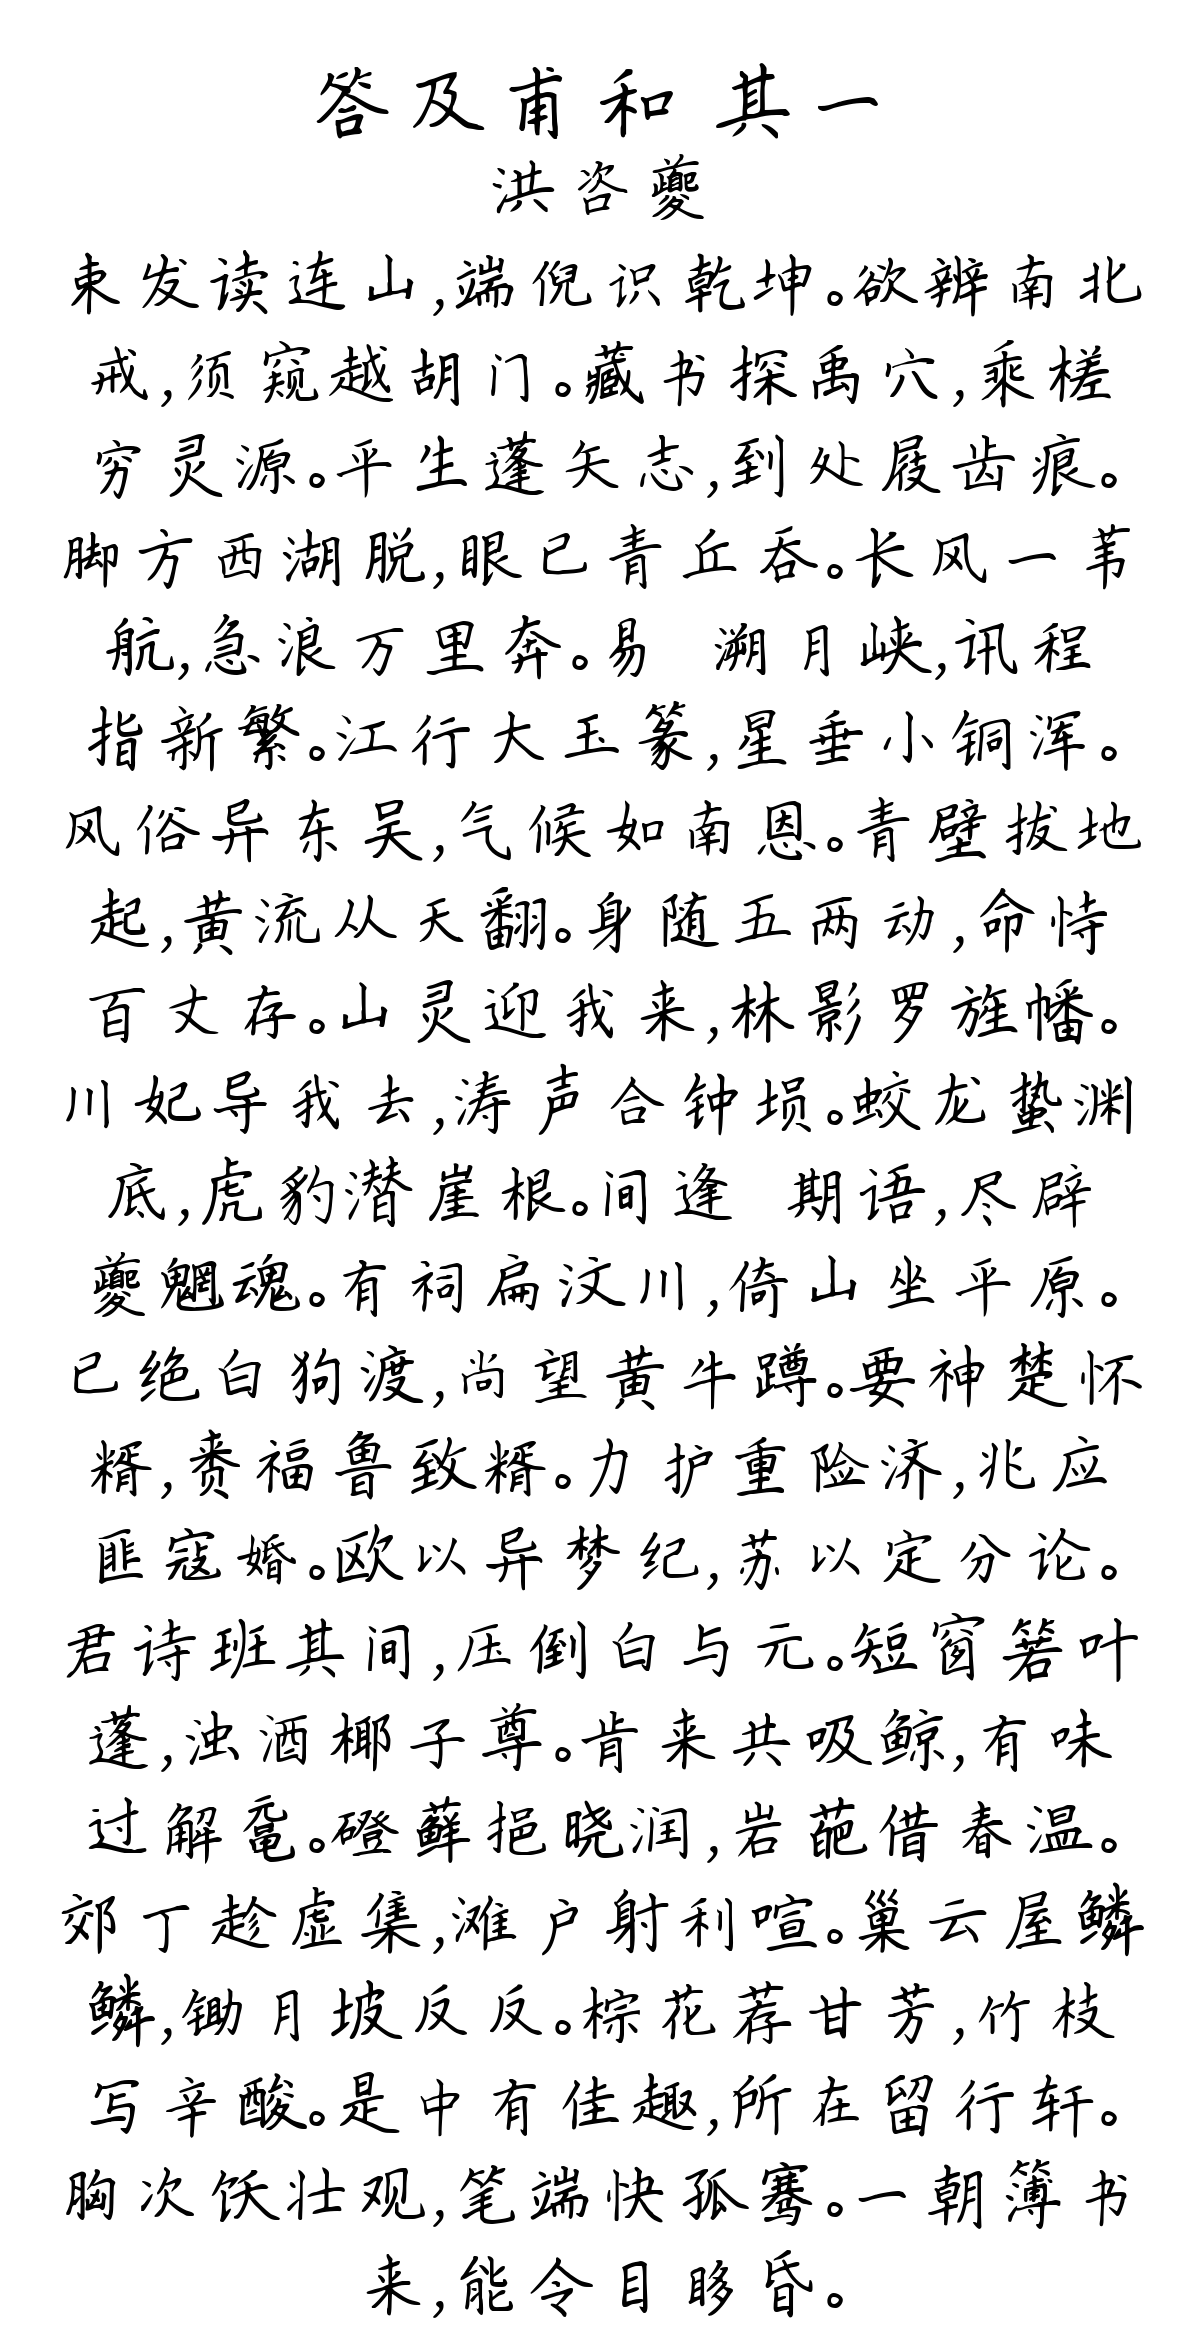 答及甫和 其一
洪咨夔
束发读连山,端倪识乾坤。欲辨南北
戒,须窥越胡门。藏书探禹穴,乘槎
穷灵源。平生蓬矢志,到处屐齿痕。
脚方西湖脱,眼已青丘吞。长风一苇
航,急浪万里奔。易 溯月峡,讯程
指新繁。江行大玉篆,星垂小铜浑。
风俗异东吴,气候如南恩。青壁拔地
起,黄流从天翻。身随五两动,命恃
百丈存。山灵迎我来,林影罗旌幡。
川妃导我去,涛声合钟埙。蛟龙蛰渊
底,虎豹潜崖根。间逢 期语,尽辟
夔魍魂。有祠扁汶川,倚山坐平原。
已绝白狗渡,尚望黄牛蹲。要神楚怀
糈,赉福鲁致糈。力护重险济,兆应
匪寇婚。欧以异梦纪,苏以定分论。
君诗班其间,压倒白与元。短窗箬叶
蓬,浊酒椰子尊。肯来共吸鲸,有味
过解鼋。磴藓挹晓润,岩葩借春温。
郊丁趁虚集,滩户射利喧。巢云屋鳞
鳞,锄月坡反反。棕花荐甘芳,竹枝
写辛酸。是中有佳趣,所在留行轩。
胸次饫壮观,笔端快孤骞。一朝簿书
来,能令目眵昏。